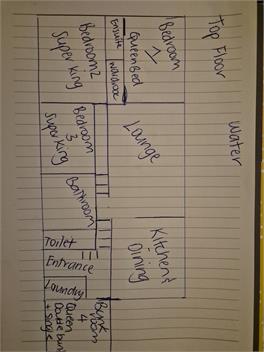 Top Floor
Water
Bedroom
1
Queen Bed
Ensuite
Wardrobe
Bedroom 2
Super king
Lounge
Bedroom
3
Super king
Bathroom
Kitchen &
Dining
Toilet
Entrance
Laundry
Bunk
Room
4
Queen
Double bunk
+ single